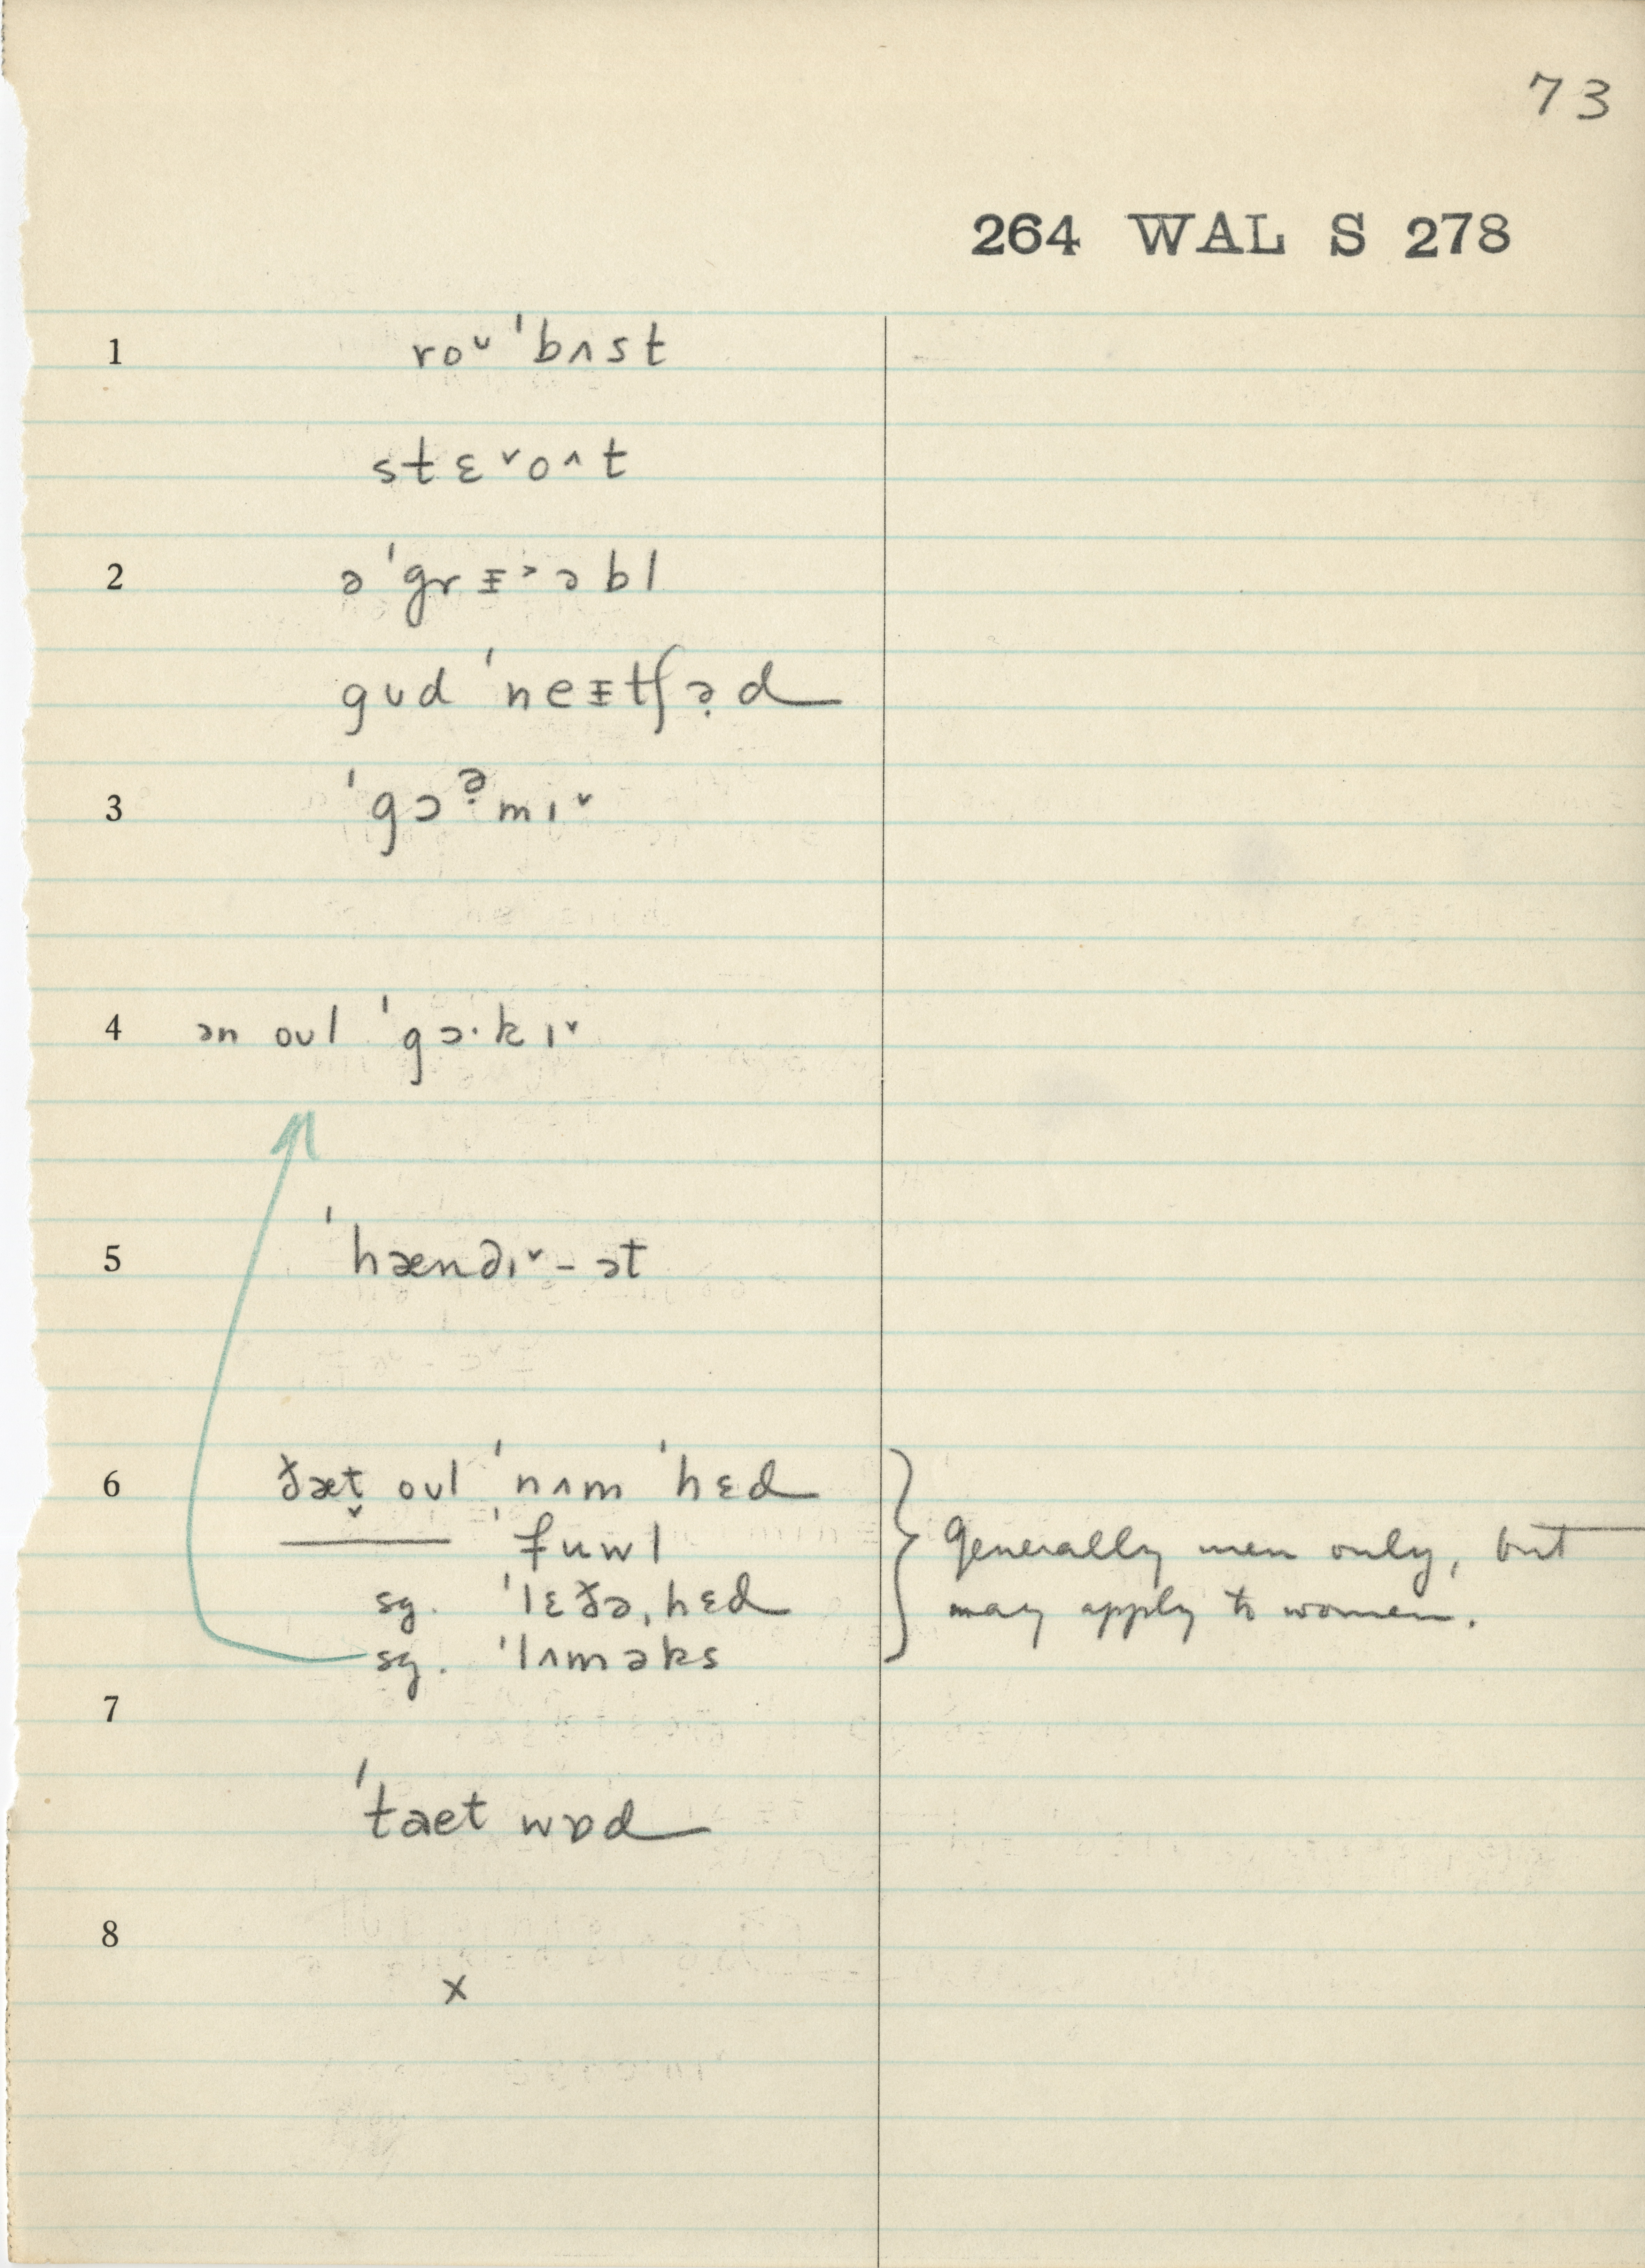 73
264 WAL S 278
1 roᵕ ˈbʌst
stɛ˅o^t
2 əˈgrᵻ˃əbl
gʊd ˈneᵻtʃə̣d
3 ˈgɔə̣mɪ˅
4 ən oʊl ˈgɔ·kɪ˅
5 ˈhændɪ˅ - ət
6 ðæt̬ oʊl ˈnʌm ˈhɛd
——— ˈfuwl
sg. ˈlɛðəˌhɛd
sg. ˈlʌməks
generally men only, but
may apply to women.
7
ˈtaet wɒd
8
x